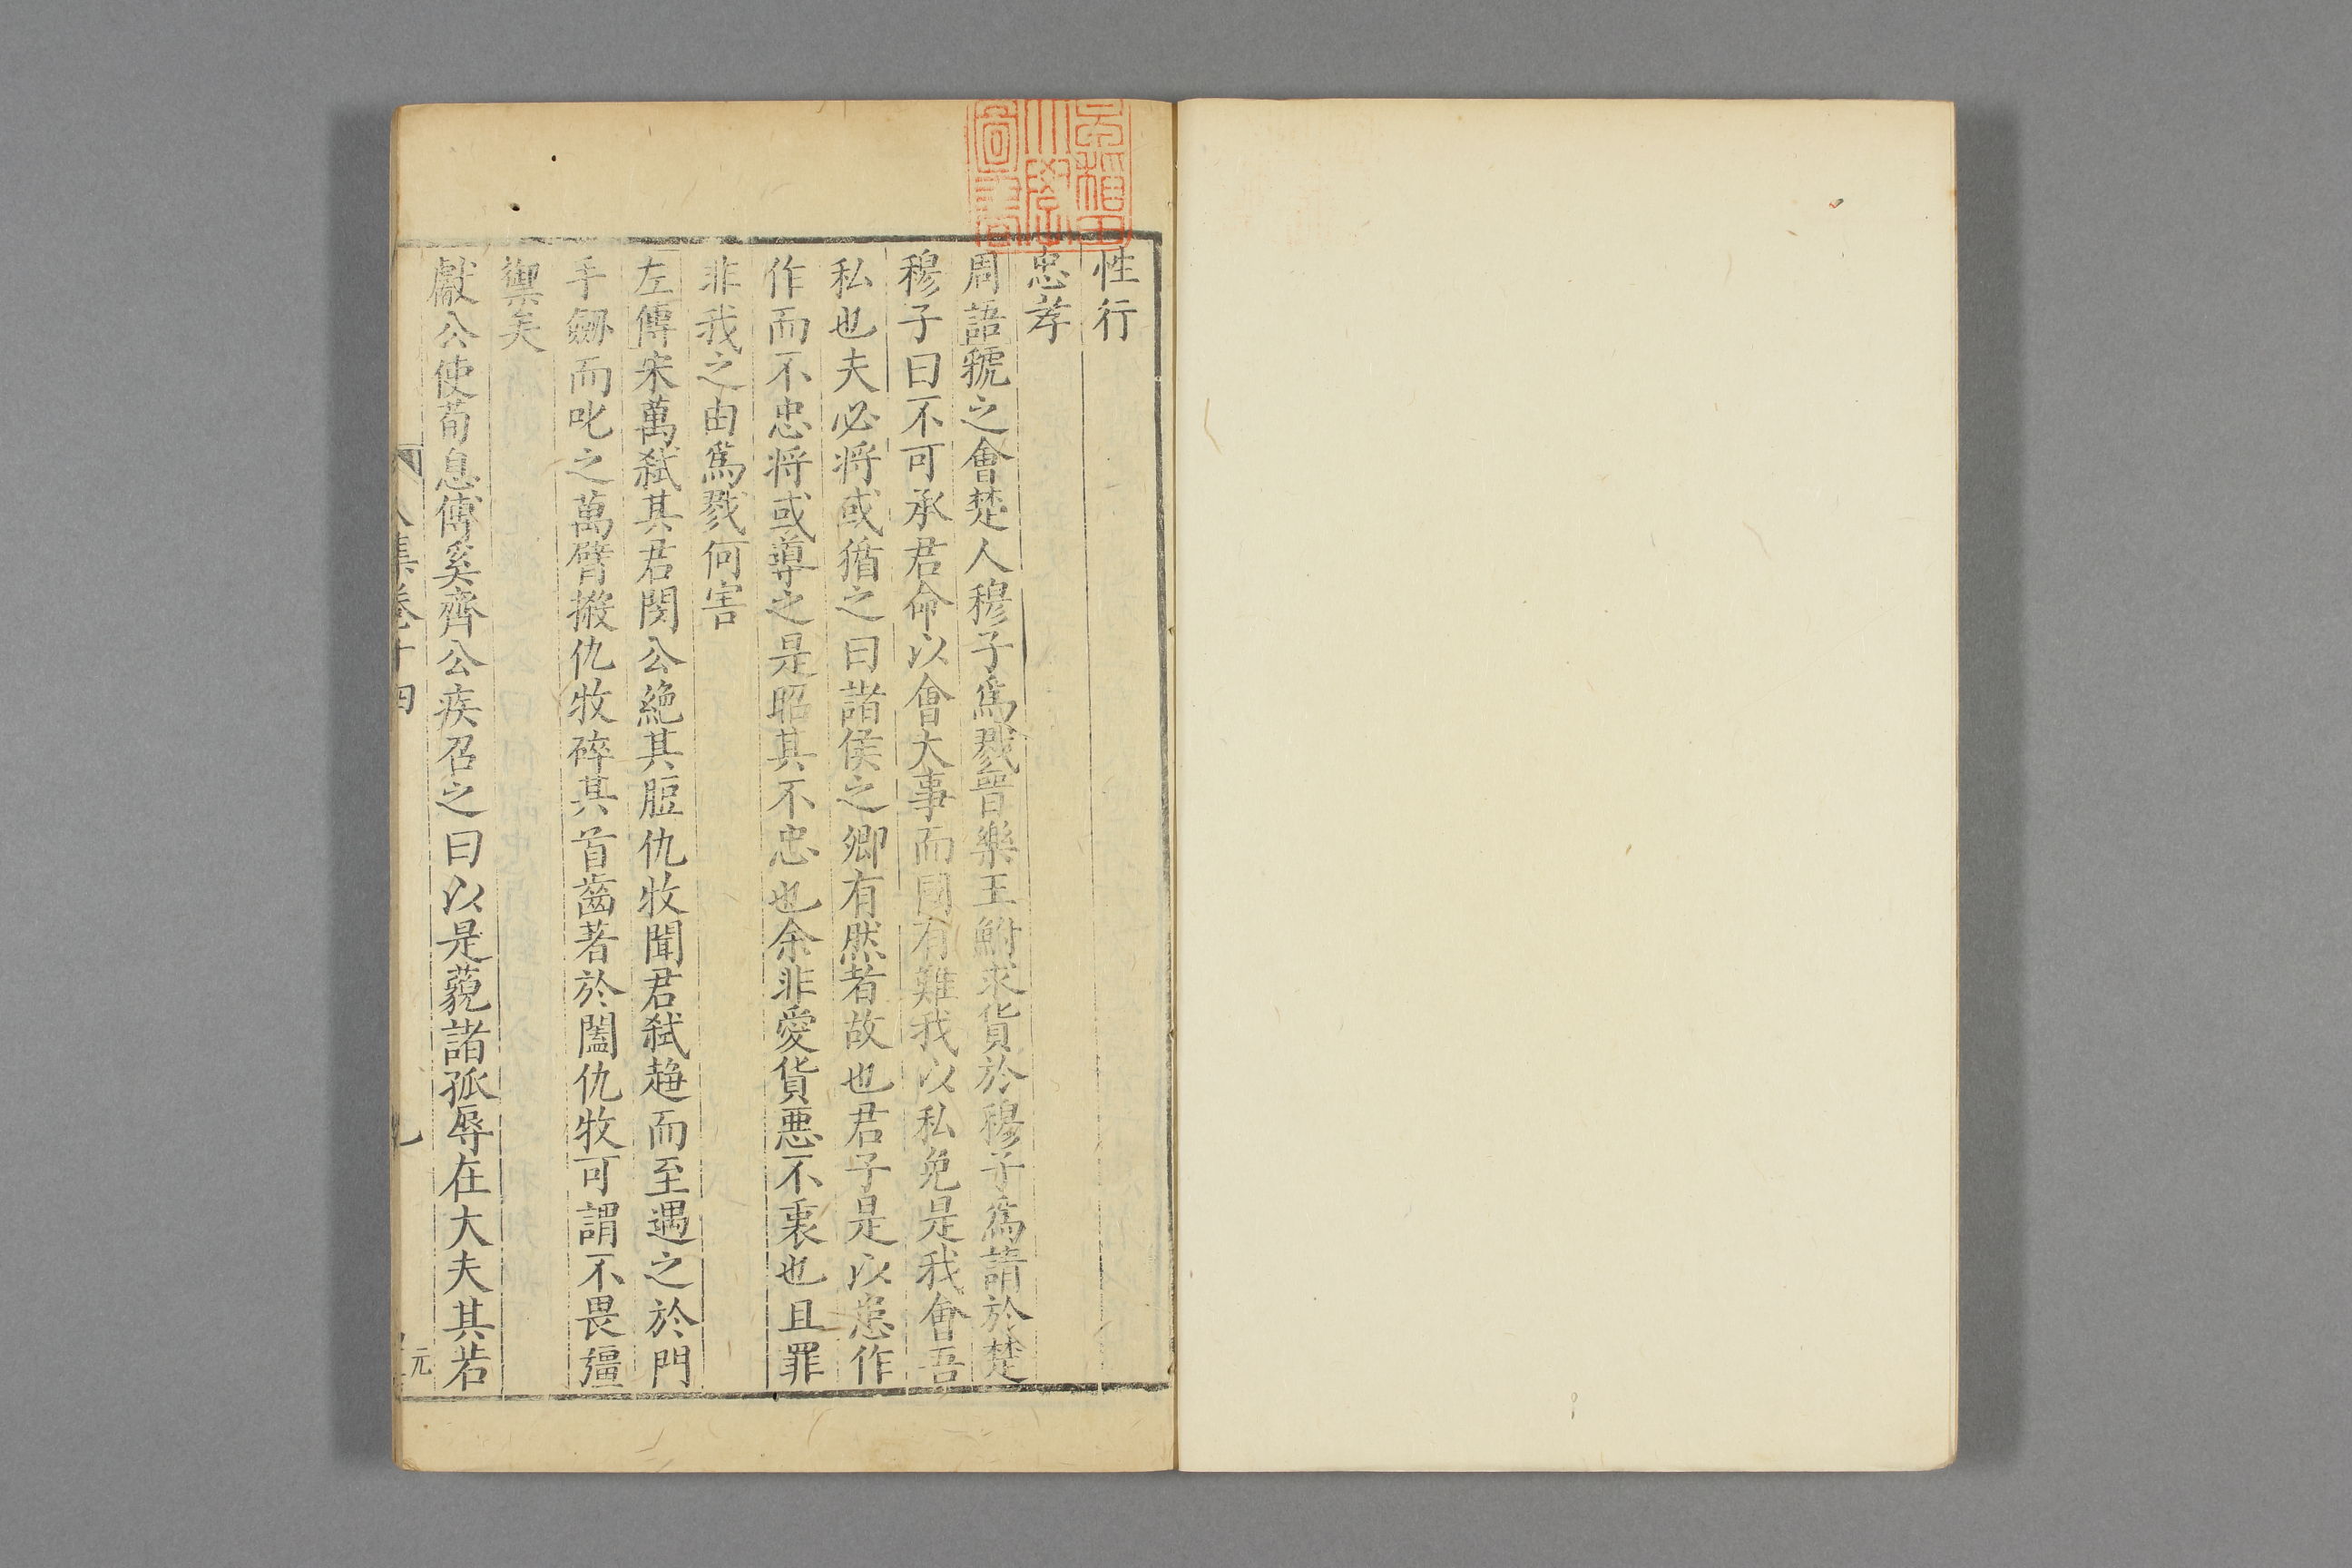 早稻田
大學
圖書
性行
忠孝
周語虢之會楚人穆子爲戮晉樂王鮒求貨於穆子爲請於楚
穆子曰不可承君命以會大事而國有難我以私免是我會吾
私也夫必將或循之曰諸侯之卿有然者故也君子是以患作
作而不忠將或導之是昭其不忠也余非愛貨惡不衷也且罪
非我之由爲戮何害
左傳宋萬弑其君閔公絶其脰仇牧聞君弑趍而至遇之於門
手劒而叱之萬臂摋仇牧碎其首齒著於闔仇牧可謂不畏彊
禦矣
獻公使荀息傅奚齊公疾召之曰以是藐諸孤辱在大夫其若
集卷十四
元